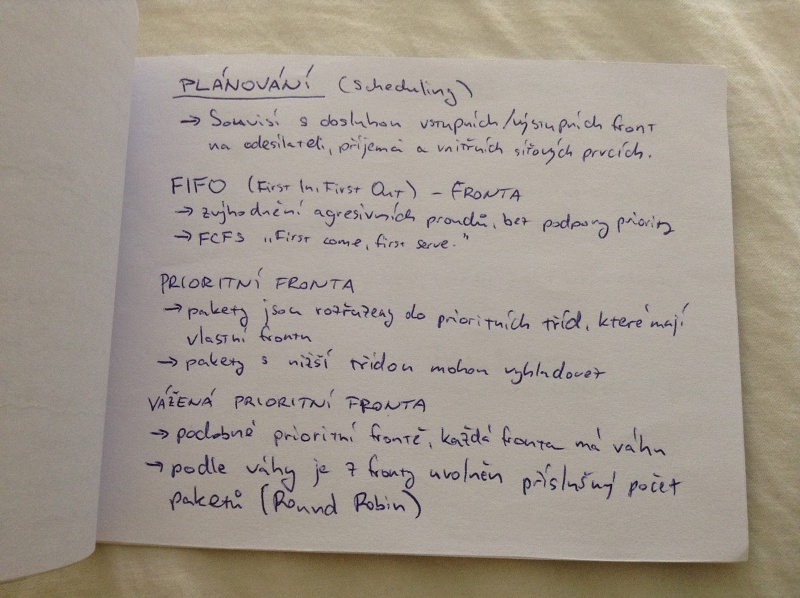 PLÁNOVÁNÍ (scheduling)
→ Souvisí s obsluhou vstupních/výstupních front
na odesílateli, příjemci a vnitřních síťových prvcích.
FIFO (First In, First Out) – FRONTA
→ zvýhodnění agresivních proudů, bez podpory priority
→ FCFS „First come, first serve."
PRIORITNÍ FRONTA
→ pakety jsou rozřazeny do prioritních tříd, které mají
vlastní frontu
→ pakety s nižší třídou mohou vyhladovět
VÁŽENÁ PRIORITNÍ FRONTA
→ podobné prioritní frontě, každá fronta má váhu
→ podle váhy je z fronty uvolněn příslušný počet
paketů (Round Robin)